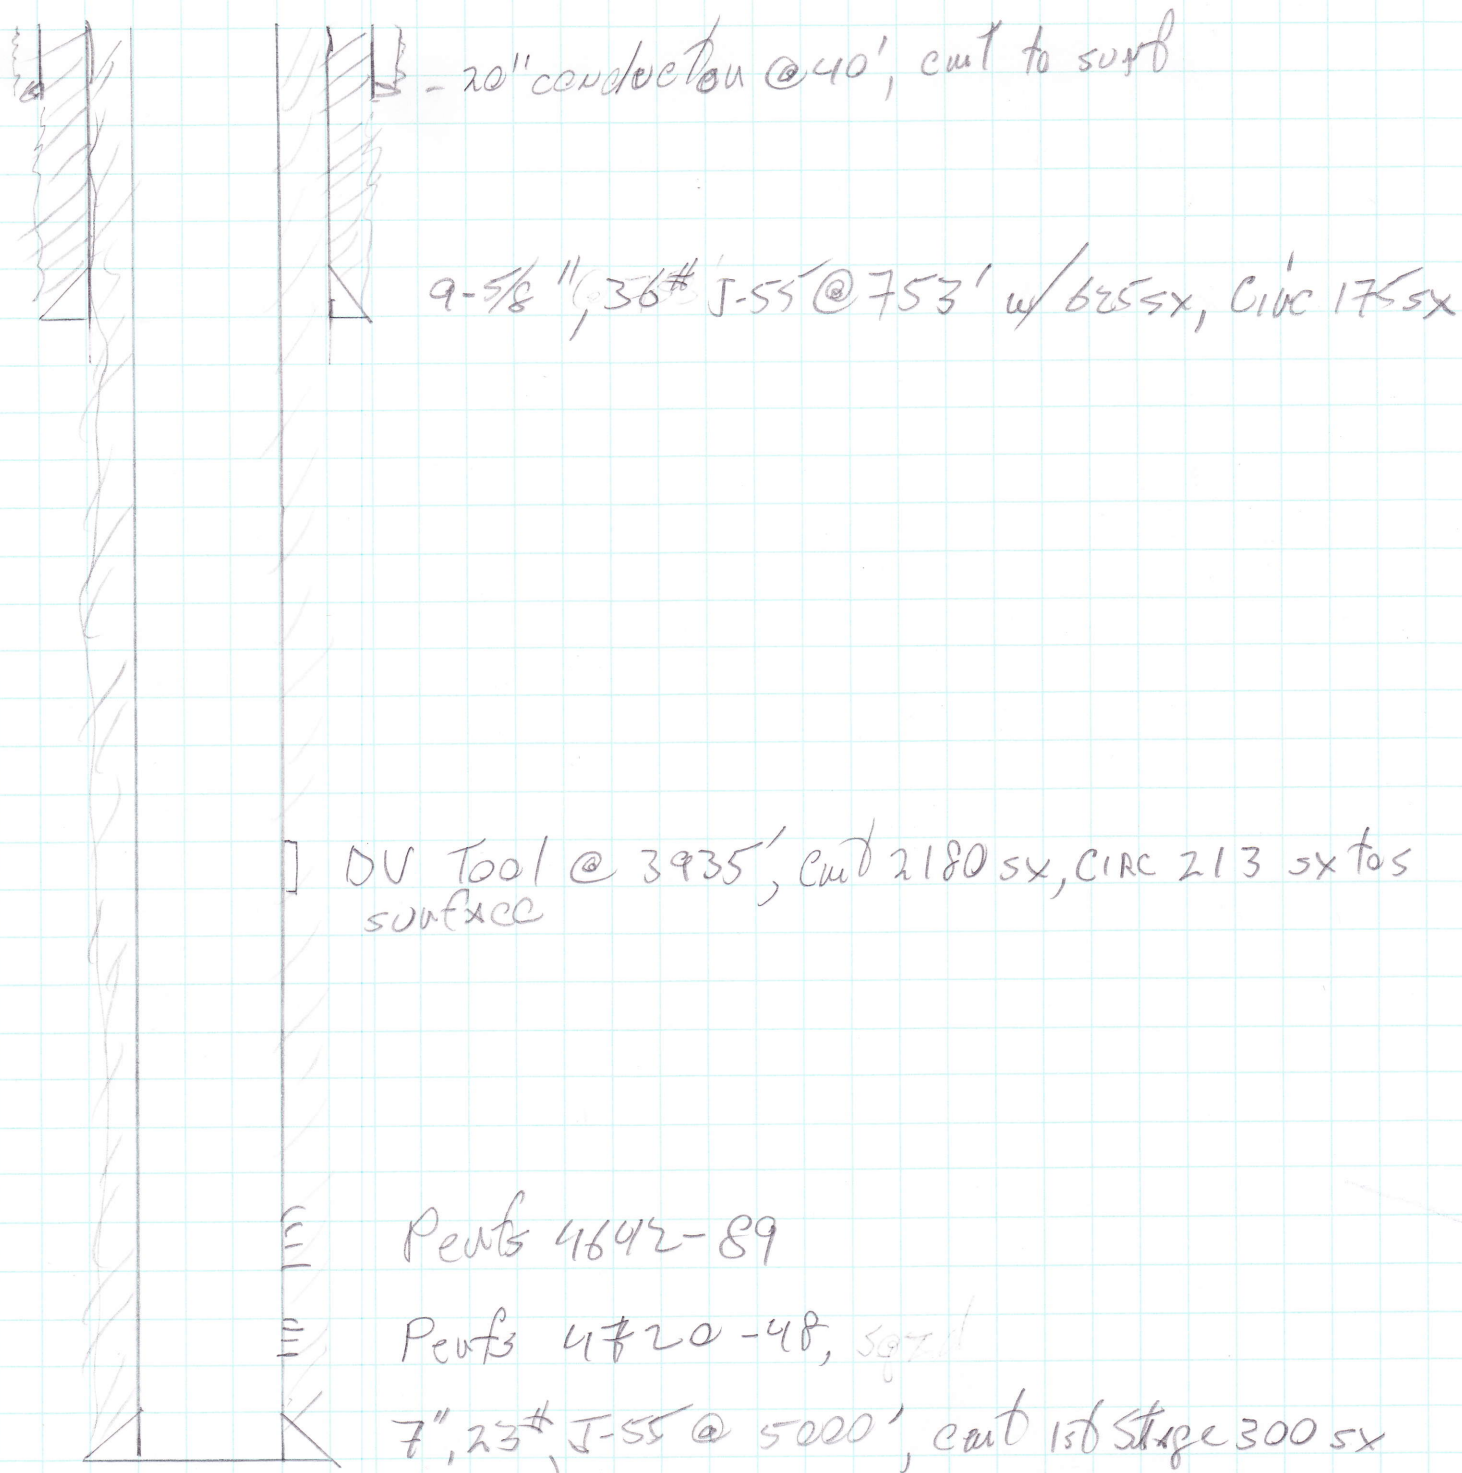 - 20" conductor @ 40', cmt to surf
9-5/8", 36# J-55 @ 753' w/ 625sx, Circ 175sx
DV Tool @ 3935', cmt 2180 sx, CIRC 213 sx tos
surface
Perfs 4642-89
Perfs 4720-48, sqzd
7", 23#, J-55 @ 5000', cmt 1st Stage 300 sx